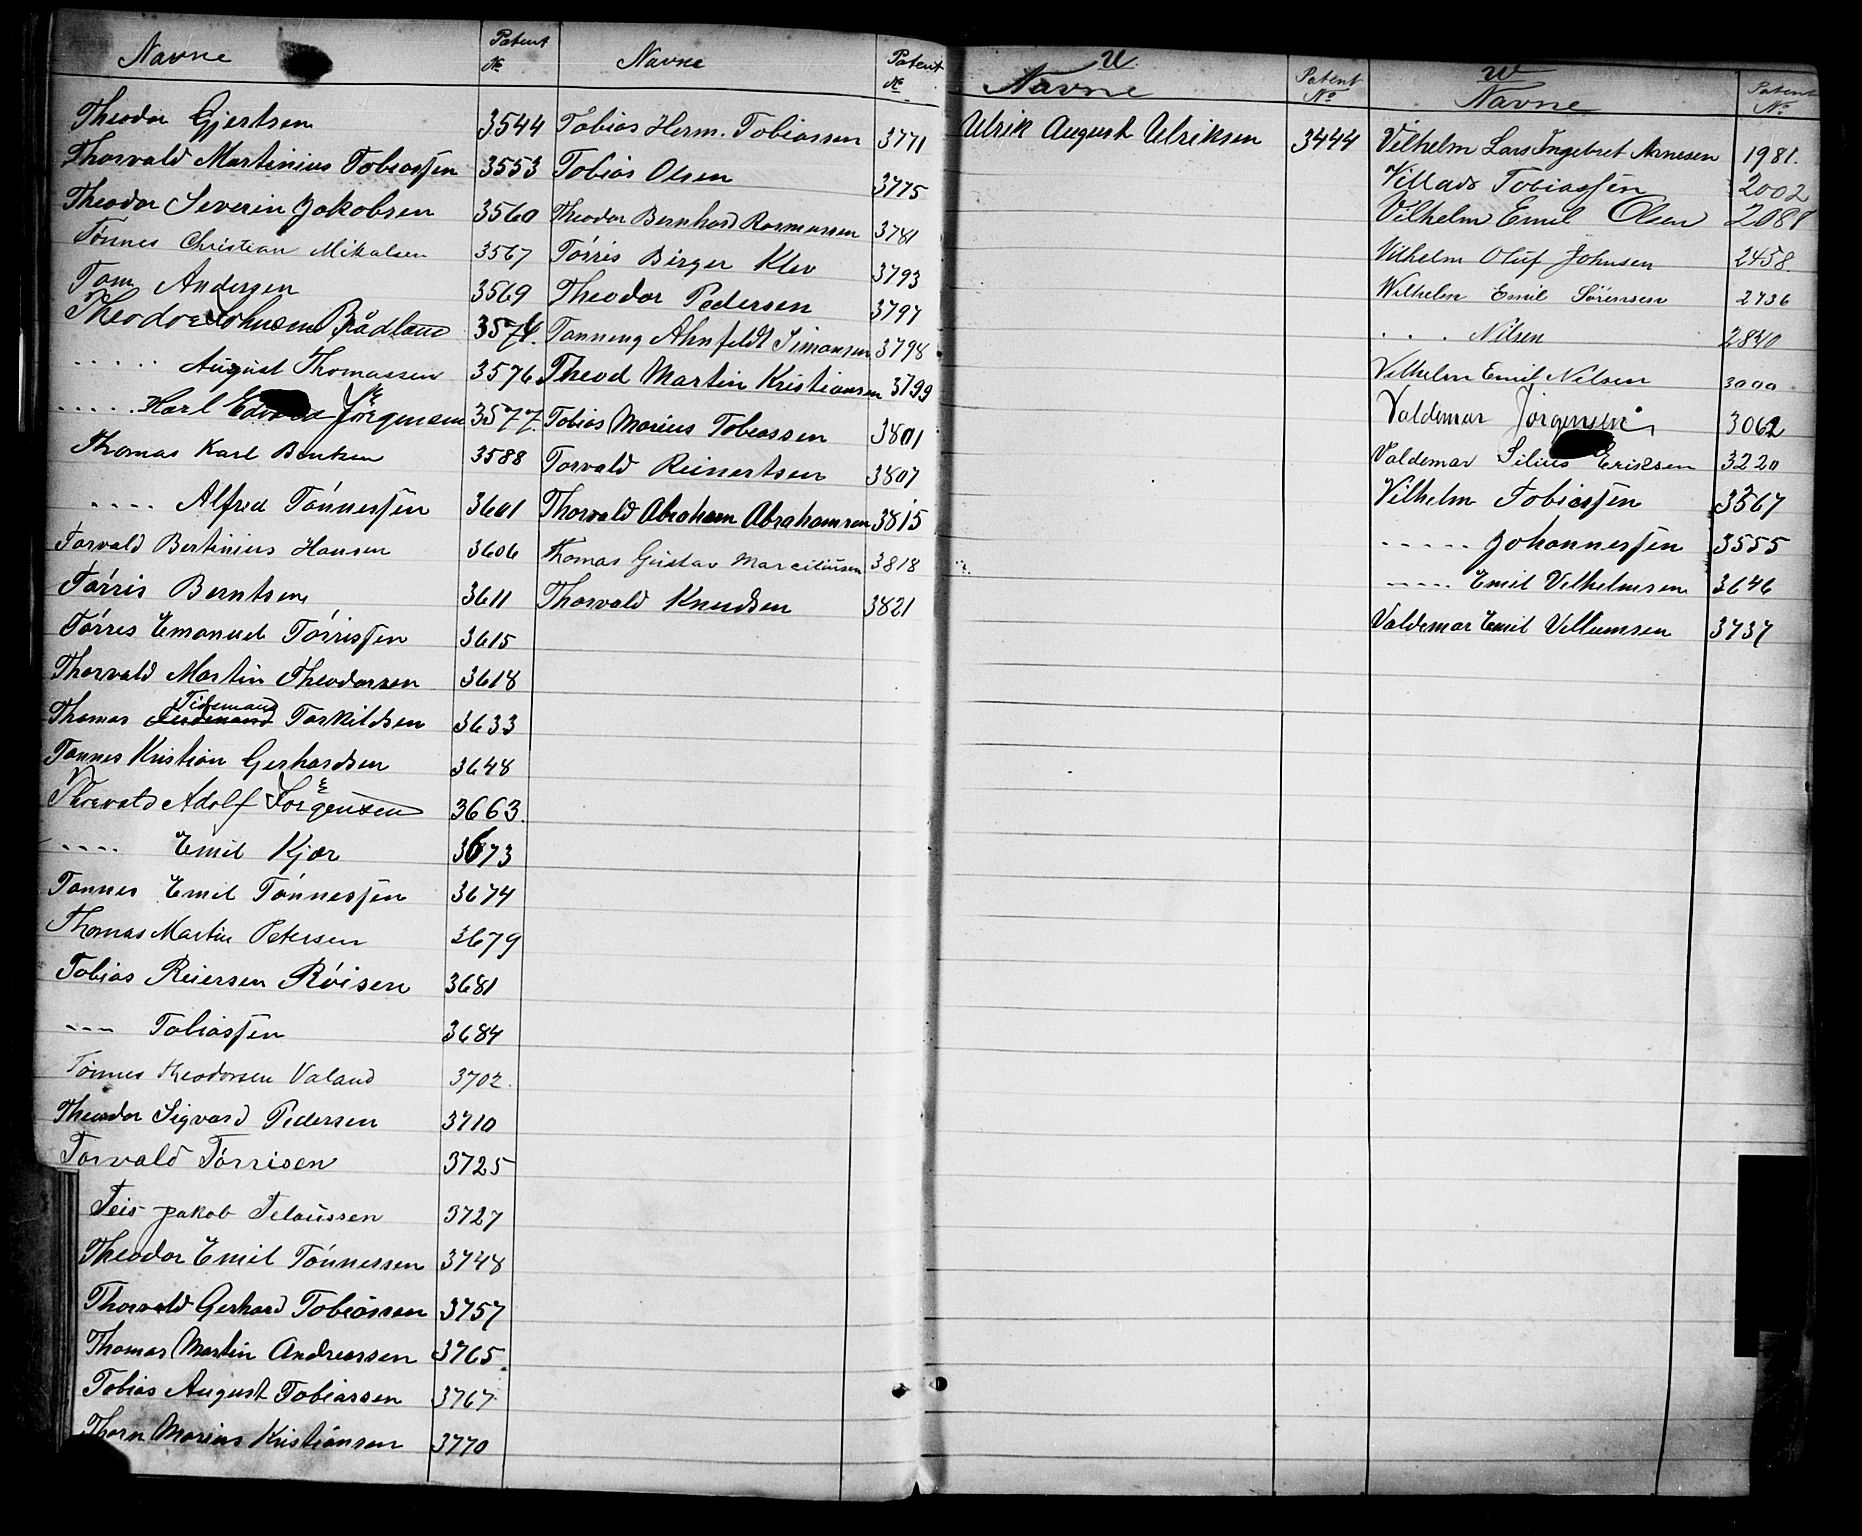 Navne Patent No
Theodor Gjertsen 3544
Thorvald Martinius Tobiassen 3553
Theodor Severin Jakobsen 3560
Tönnes Christian Mikalsen 3567
Tom Andersen 3569
Theodor Johnsen Brådland 3574.
. . . . . August Thomassen 3576
. . . . . Karl Edvard Jörgensen 3577.
Thomas Karl Bentsen 3588
. . . . Alfred Tönnessen 3601
Torvald Bertinius Hansen 3606
Törris Berntsen 3611
Törres Emanuel Törrissen 3615
Thorvald Martin Theodorsen 3618
Tidemand
Thomas Torkildsen 3633
Tönnes Kristian Gerhardsen 3648
Thorvald Adolf Jörgensen 3663.
. . . . Emil Kjær 3673
Tönnes Emil Tönnessen 3674
Thomas Martin Petersen 3679
Tobias Reiersen Röisen 3681
--- Tobiassen 3684
Tönnes Theodorsen Valand 3702.
Theodor Sigvard Pedersen 3710
Torvald Törrisen 3725
Teis Jakob Telaussen 3727
Theodor Emil Tönnessen 3748
Thorvald Gerhard Tobiassen 3757
Thomas Martin Andreassen 3765.
Tobias August Tobiassen 3767
Thorn Marius Kristiansen 3770
Navne Patent No
Tobias Herm. Tobiassen 3771
Tobias Olsen 3775
Theodor Bernhard Rasmussen 3781
Törris Birger Klev 3793
Theodor Pedersen 3797
Tönning Ahnfeldt Simonsen 3798
Theod Martin Kristiansen 3799
Tobias Marius Tobiassen 3801
Torvald Reinertsen 3807
Thorvald Abraham Abrahamsen 3815
Thomas Gustav Marciliusen 3818
Thorvald Knudsen 3821
U.
Navne Patent No
Ulrik August Ulriksen 3444
W
Navne Patent No
Vilhelm Lars Ingebret Arnesen 1981.
Villads Tobiassen 2002
Vilhelm Emil Olsen 2088
Vilhelm Oluf Johnsen 2458.
Wilhelm Emil Sörensen 2736
. . . Nilsen 2840
Vilhelm Emil Nilsen 3000
Valdemar Jörgensen 3062
Valdemar Silius Eriksen 3220
Vilhelm Tobiassen 3567
- - - - - Johannessen 3555
- - - - - Emil Vilhelmsen 3646
Valdemar Emil Villumsen 3737